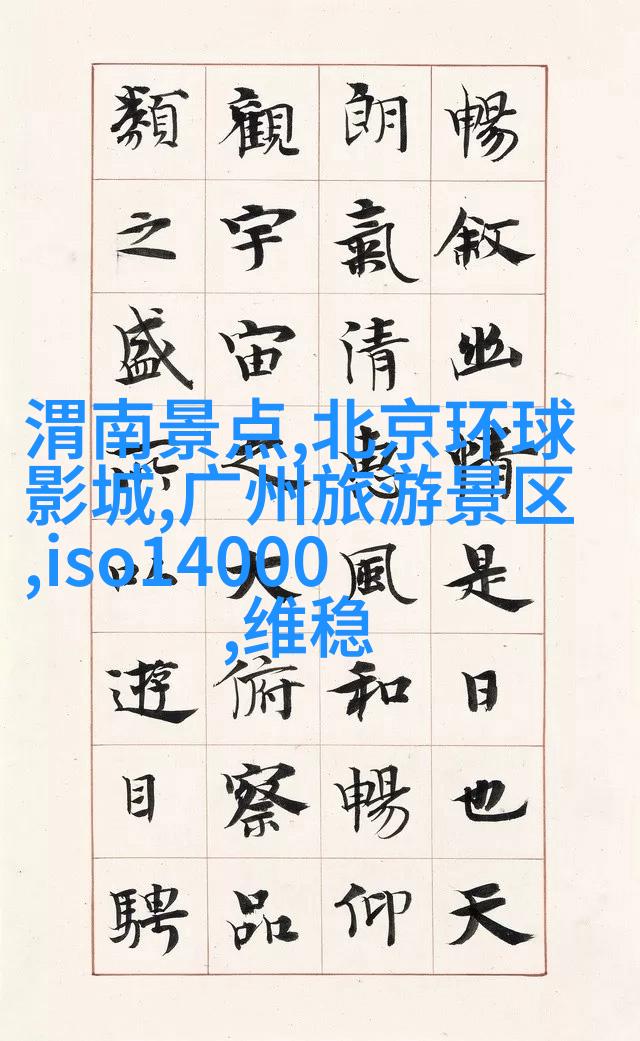 暢敘幽情是日也天
朗氣清惠風和暢仰
觀宇宙之大俯察品
類之盛所以遊目騁
渭南景点,北京环球
影城,广州旅游景区
,iso14000
,维稳